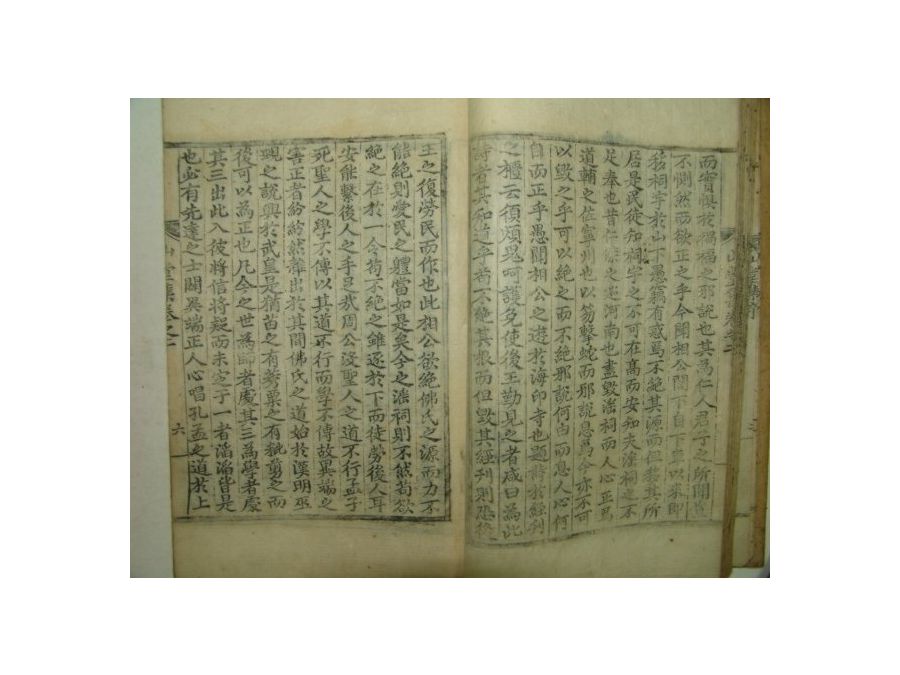 而實惧於禍福之邪說也其為仁人君子之所
不惻然而欲正之乎今聞相公閤下自下車以來即
祠宇於山下愚竊有惑焉不絶其源而但
居是民徒知祠宇之不可在高而安知夫淫祠之不
足奉也昔仁傑之巡河南也盡毀淫祠而人心正焉
道輔之佐寧州也以笏擊蛇而邪說息焉今亦不可
以毀之乎可以絶之而不絶邪說何自而息人心何
自而正乎愚聞相公之遊於海印寺也題詩於經刊
之櫃云須煩鬼呵護免使後王勤見之者咸曰為此
詩者其知道乎若不絶其根而但毀其經刊則恐後
王之復勞民而作也此相公欲絶佛氏之源而力不
能絶則愛民之軆當如是矣今之淫祠則不然苟欲
絶之在於一令苟不絶之雖逐於下而徒勞後人耳
安能繫後人之手足哉周公没聖人之道不行孟子
死聖人之學不傳以其道不行而學不傳故異端之
害正者紛紛然雜出於其間佛氏之道始於漢明巫
覡之說興於武皇是猶苗之有莠粟之有秕剪之而
後可以為正也凡今之世為師者處其三為學者處
其三出此入彼將信將疑而未定于一者滔滔皆是
也必有先達之士闢異端正人心唱孔孟之道於上
山堂集卷之二
六